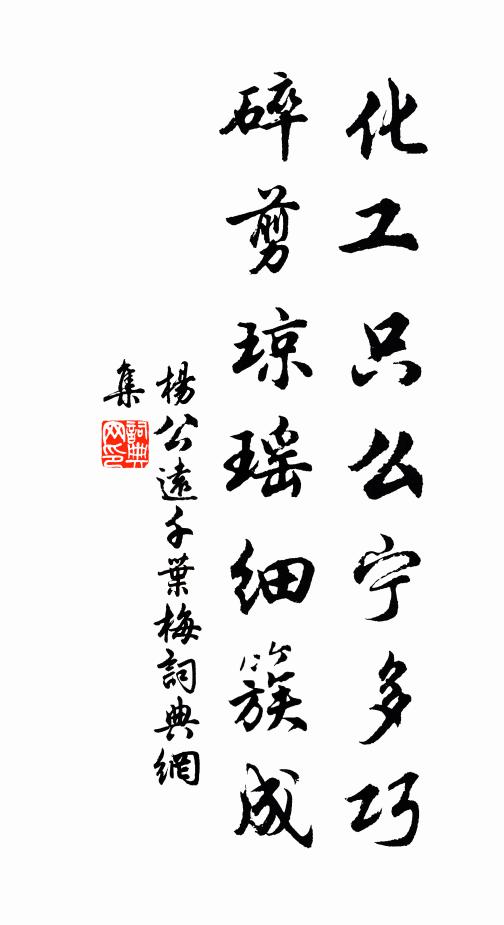 化工只么宁多巧
碎剪琼瑶细簇成
楊公遠千葉梅詞典網
集
詞典
网印